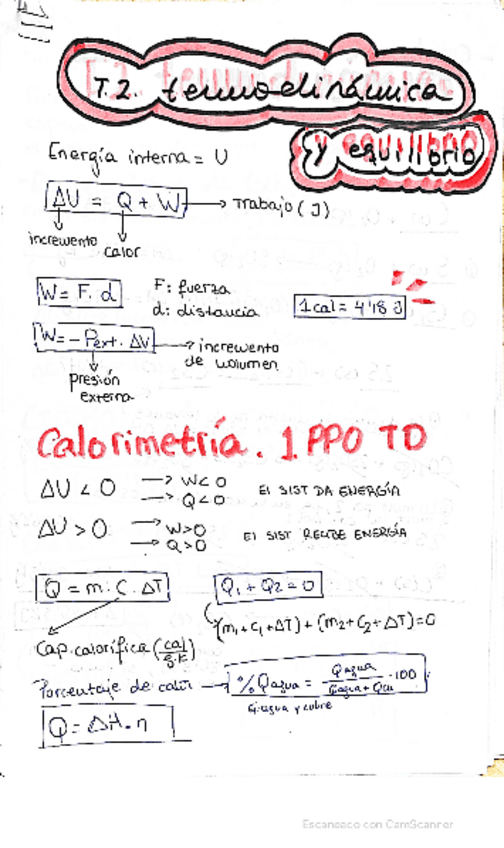 T.2. termodinámica
y equilibrio
Energía interna = U
ΔU = Q + W → Trabajo (J)
incremento calor
W = F. d F: fuerza
d: distancia 1 cal = 4'18 J
W = - Pext. ΔV → incremento
de volumen
presión
externa
Calorimetría. 1 PPO TD
ΔU < 0 → W < 0
→ Q < 0 El SIST DA ENERGÍA
ΔU > 0 → W > 0
→ Q > 0 El SIST RECIBE ENERGÍA
Q = m. C. ΔT Q1 + Q2 = 0
(m1 + C1 + ΔT) + (m2 + C2 + ΔT) = 0
Cap. calorífica (cal/g.K)
Porcentaje de calor → % Qagua = Qagua/Qagua + Qcu · 100
Ej: agua y cobre
Q = ΔH. n
Escaneado con CamScanner